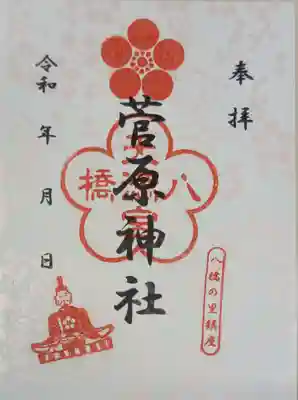 奉拝
八橋の里鎮座
菅原神社
八橋
天満宮
令和 年 月 日